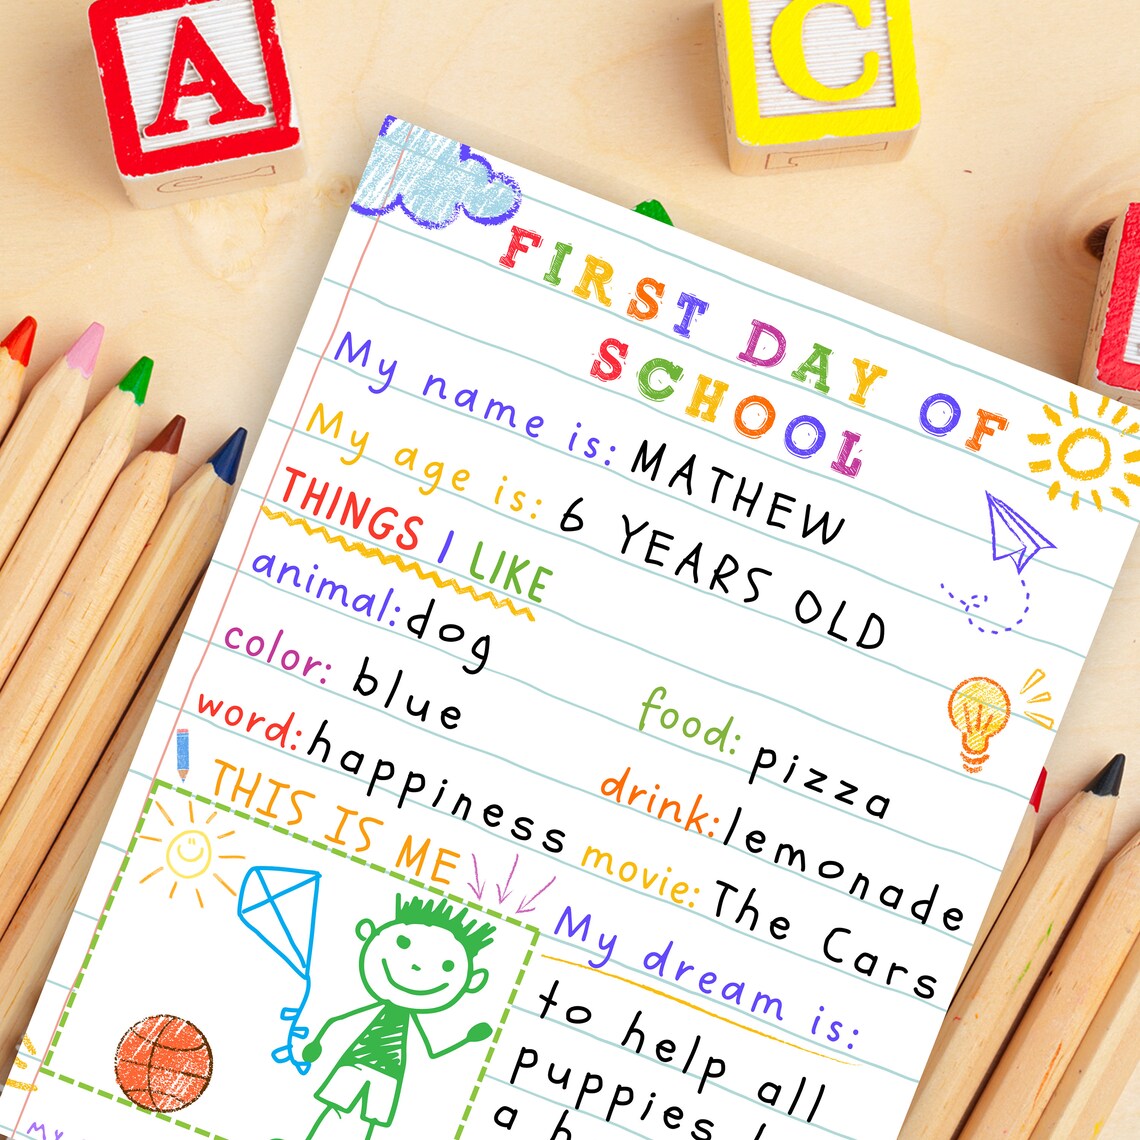 A
C
FIRST DAY OF
SCHOOL
My name is: MATHEW
My age is: 6 YEARS OLD
THINGS I LIKE
animal: dog
color: blue
food: pizza
word: happiness
drink: lemonade
movie: The Cars
THIS IS ME
My dream is:
to help all
puppies
a
My